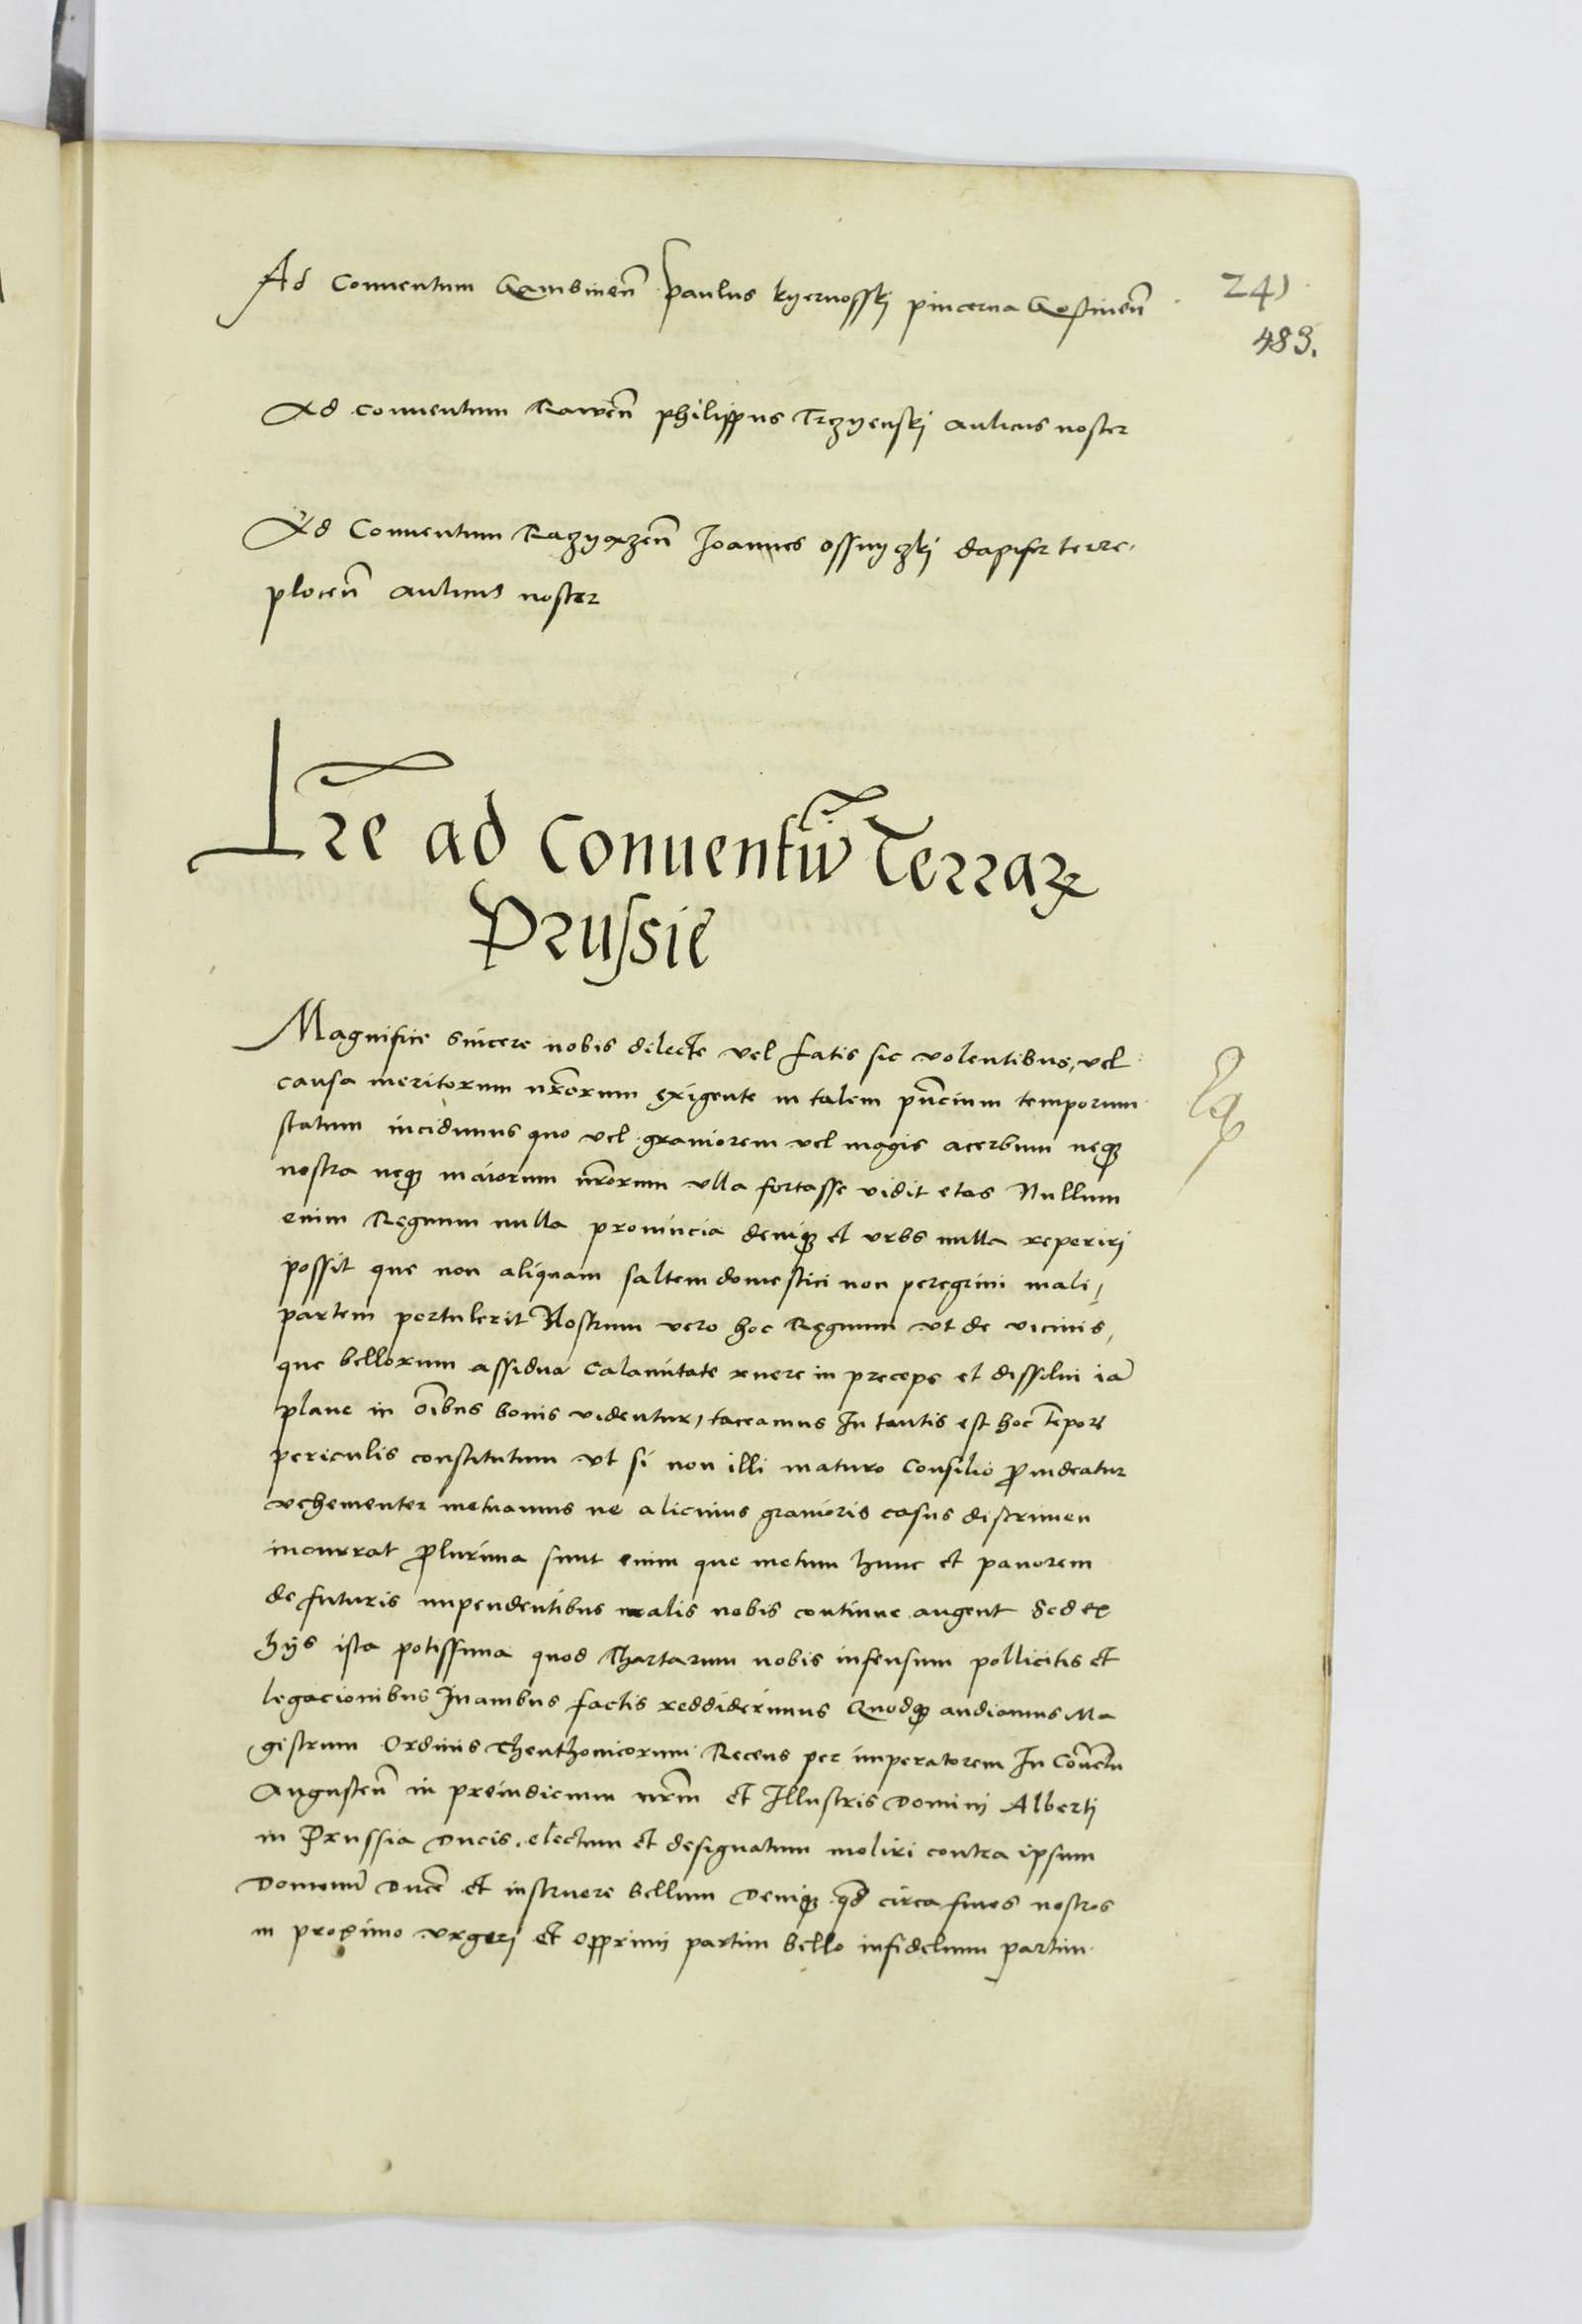 Ad Conuentum Gambineñ paulus kyernosskj pincerna Gostineñ
241
483.
Ad conuentum Raweñ philippus Trzyenskj aulicus noster
Ad Conuentum Razyazeñ Joannes ossuyczkj dapifer terre
ploceñ aulicus noster
Lr̃e ad Conuentũ Terraꝝ
Prussie
Magnifice sincere nobis dilecte vel fatis sic volentibus, vel
causa meritorum nr̃orum exigente in talem pñcium temporum
statum incidimus quo vel grauiorem vel magis acerbum neqꝫ
nostra neqꝫ maiorum nr̃orum vlla fortasse vidit etas Nullum
enim Regnum nulla prouincia deniqꝫ et vrbs nulla reperirj
possit que non aliquam saltem domestici non peregrini mali,
partem pertulerit Nostrum vero hoc Regnum vt de vicinis,
que bellorum assidua calamitate ruere in preceps et dissolui iã
plane in oĩbus bonis videntur, taceamus In tantis est hoc tẽpore
periculis constitutum vt si non illi maturo Consilio ꝓuideatur
vehementer metuamus ne alicuius grauioris casus discrimen
incurrat ꝓlurima sunt enim que metum hunc et pauorem
de futuris impendentibus malis nobis continue augent Sed ex
hijs ista potissima quod Thartarum nobis infensum pollicitis et
legacionibus Inanibus factis reddiderimus Quodqꝫ audiamus Ma
gistrum Ordinis Theuthonicorum Recens per imperatorem In Cõuẽtu
Augusteñ in preiudicium nr̃m et Illustris Domini Albertj
in Prussia Ducis electum et designatum moliri contra ipsum
Dominũ Ducẽ et instruere bellum Deniqꝫ qđ circa fines nostros
in proximo vrgerj et opprimi partim bello infidelium partim